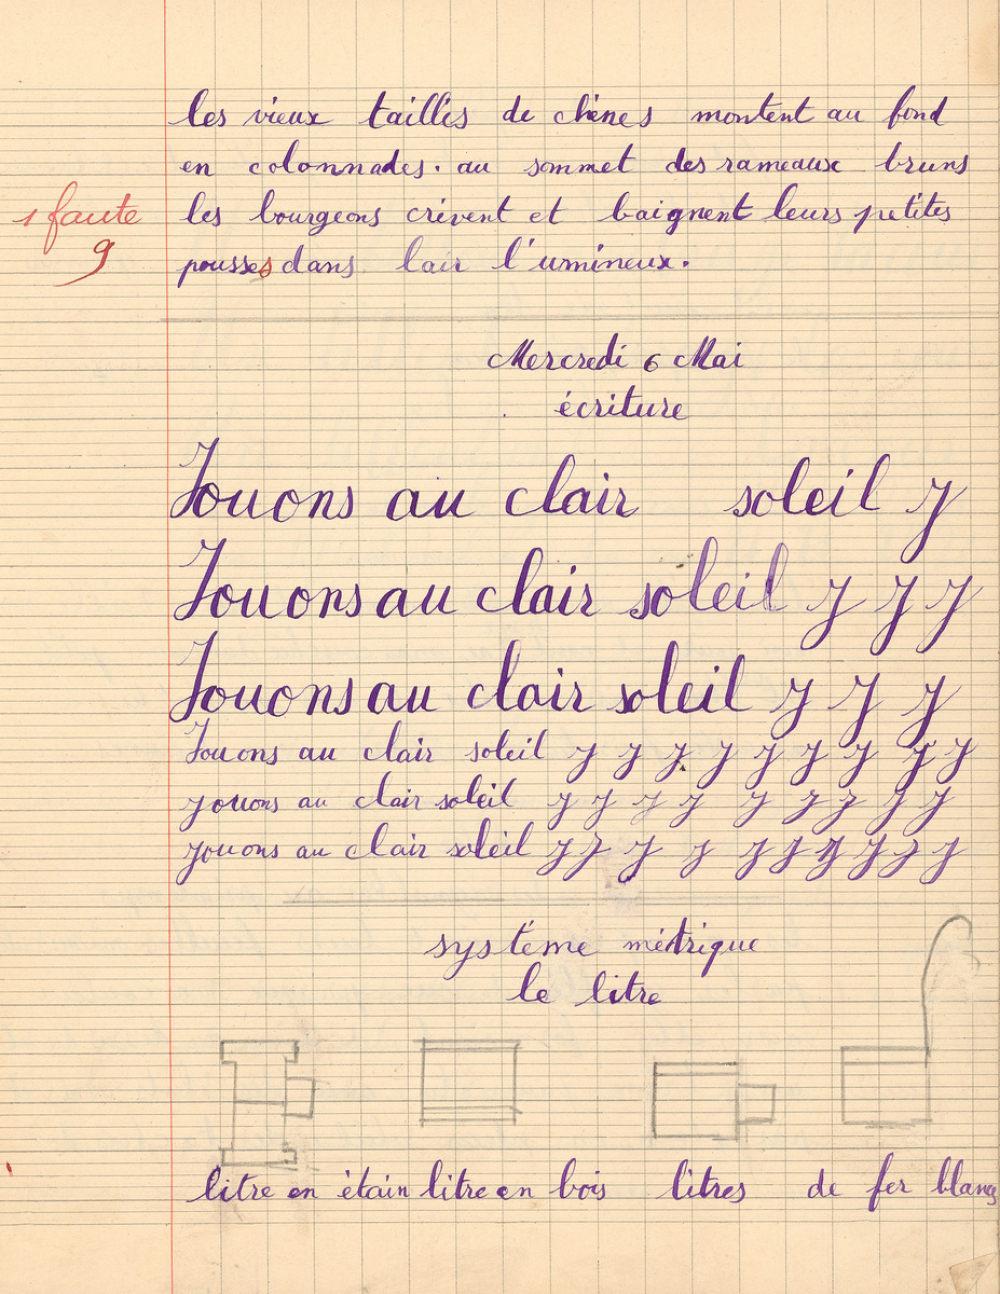 les vieux taillis de chênes montent au fond
en colonnades. au sommet des rameaux bruns
1 faute les bourgeons crèvent et baignent leurs petites
9 pousses dans lair l'umineux.
Mercredi 6 Mai
écriture
Jouons au clair soleil J
Jouons au clair soleil J J J
Jouons au clair soleil J J J
Jouons au clair soleil J J J J J J J J J
Jouons au clair soleil J J J J J J J J J
Jouons au clair soleil J J J J J J J J J J
système métrique
le litre
litre en étain litre en bois litres de fer blanc